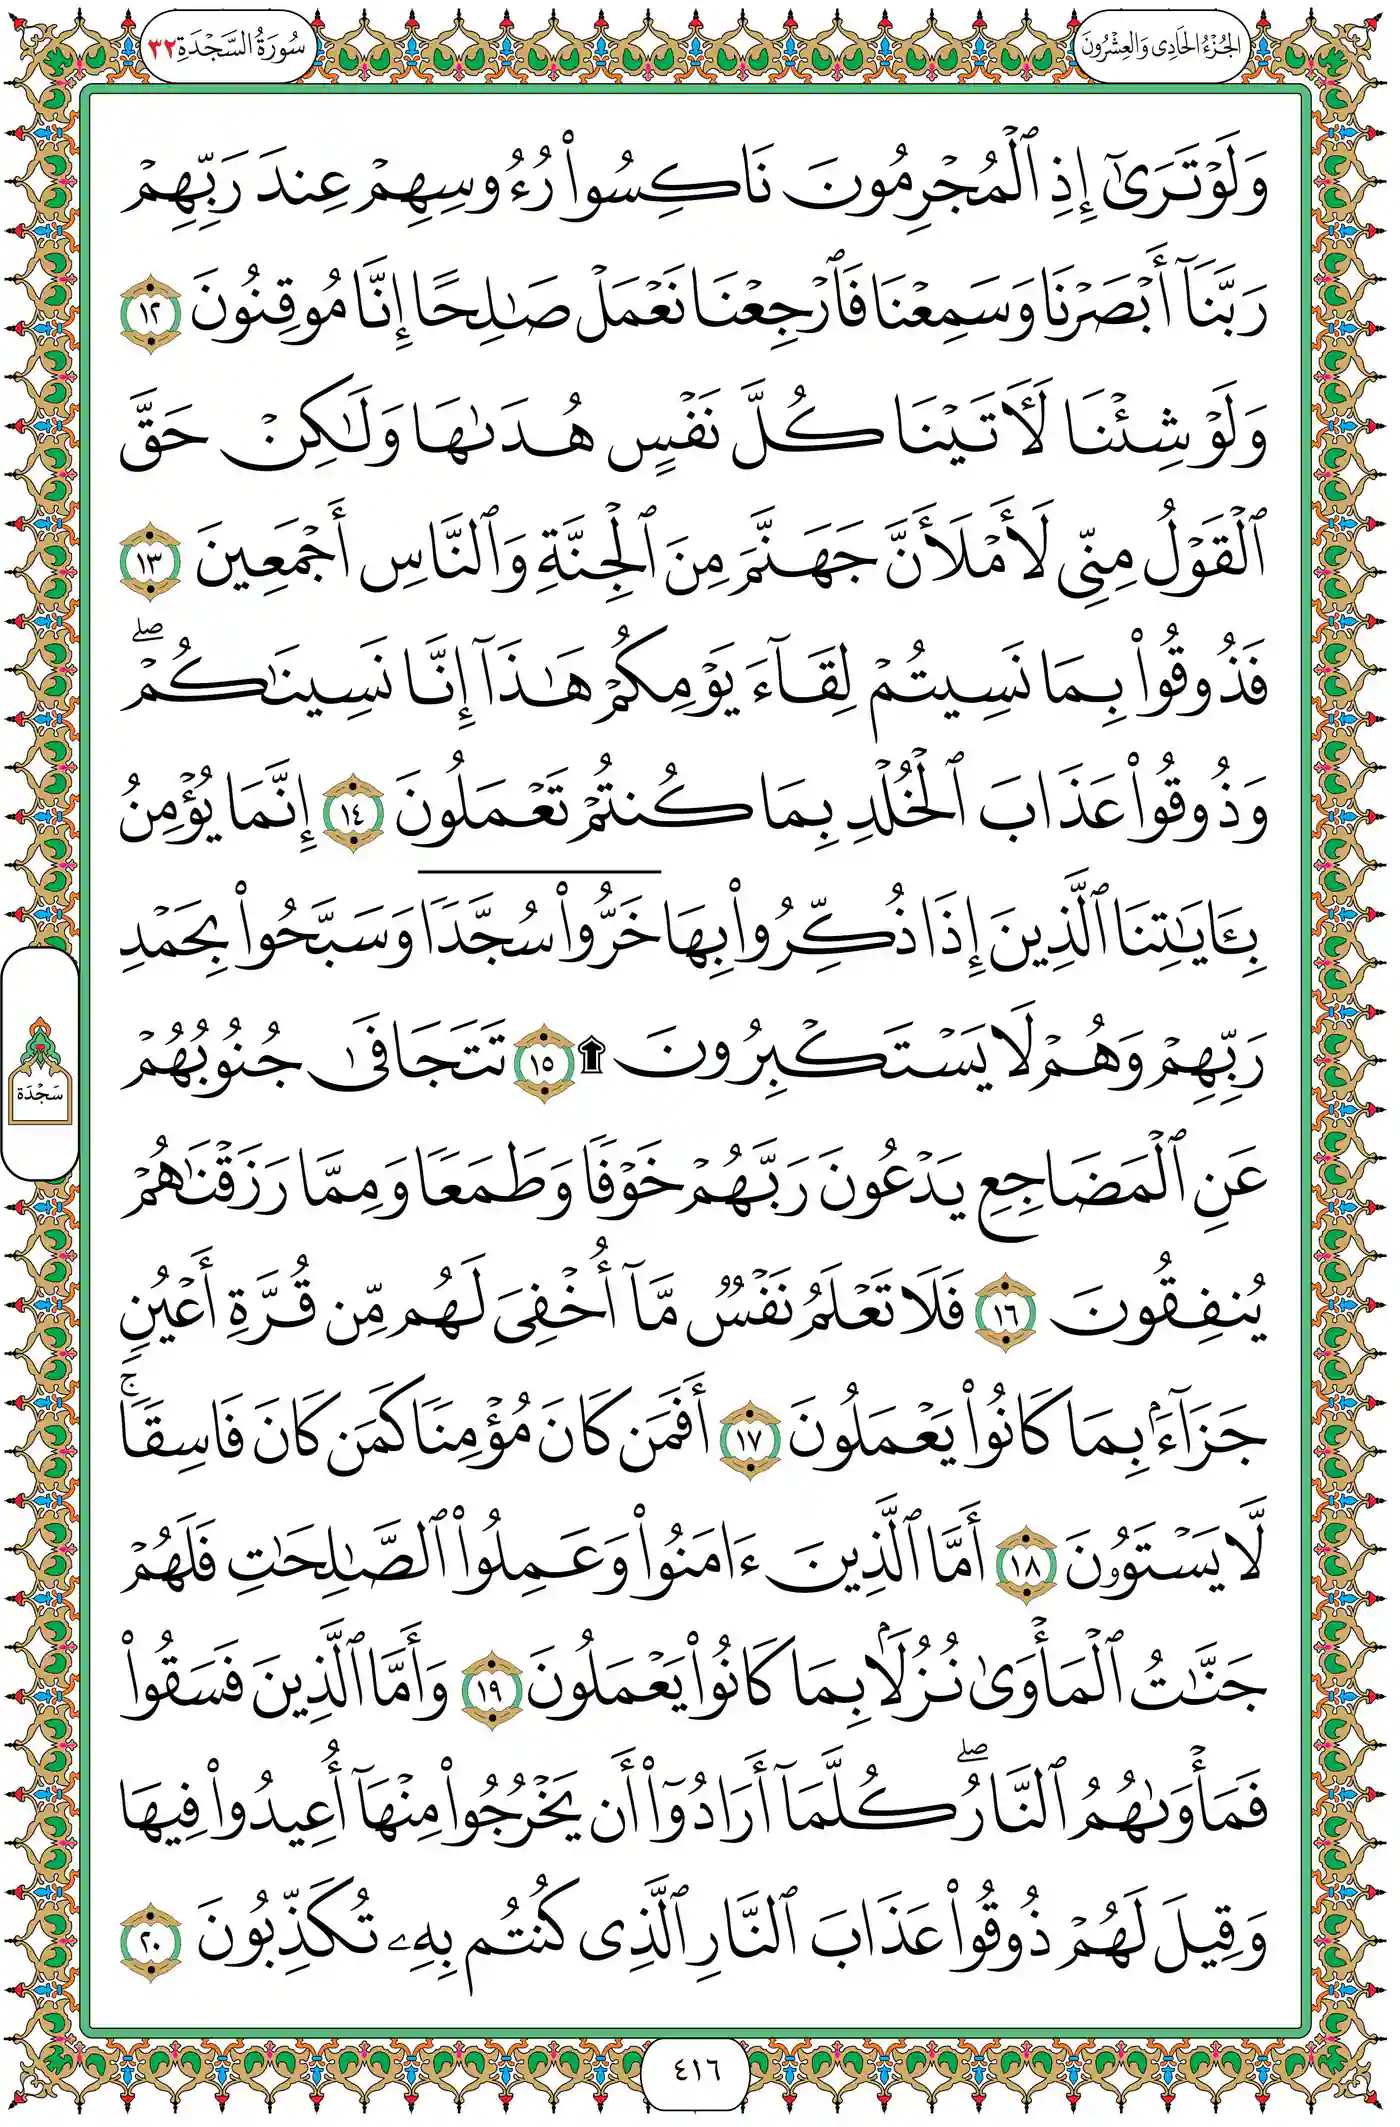 الجُزْءُ الحَادِى وَالعِشْرُونَ
سُورَةُ السَّجْدَةِ ٣٢
وَلَوْ تَرَىٰٓ إِذِ ٱلْمُجْرِمُونَ نَاكِسُوا۟ رُءُوسِهِمْ عِندَ رَبِّهِمْ
رَبَّنَآ أَبْصَرْنَا وَسَمِعْنَا فَٱرْجِعْنَا نَعْمَلْ صَـٰلِحًا إِنَّا مُوقِنُونَ ١٢
وَلَوْ شِئْنَا لَـَٔاتَيْنَا كُلَّ نَفْسٍ هُدَىٰهَا وَلَـٰكِنْ حَقَّ
ٱلْقَوْلُ مِنِّى لَأَمْلَأَنَّ جَهَنَّمَ مِنَ ٱلْجِنَّةِ وَٱلنَّاسِ أَجْمَعِينَ ١٣
فَذُوقُوا۟ بِمَا نَسِيتُمْ لِقَآءَ يَوْمِكُمْ هَـٰذَآ إِنَّا نَسِينَـٰكُمْ ۖ
وَذُوقُوا۟ عَذَابَ ٱلْخُلْدِ بِمَا كُنتُمْ تَعْمَلُونَ ١٤ إِنَّمَا يُؤْمِنُ
بِـَٔايَـٰتِنَا ٱلَّذِينَ إِذَا ذُكِّرُوا۟ بِهَا خَرُّوا۟ سُجَّدًا وَسَبَّحُوا۟ بِحَمْدِ
رَبِّهِمْ وَهُمْ لَا يَسْتَكْبِرُونَ ۩ ١٥ تَتَجَافَىٰ جُنُوبُهُمْ
سَجْدَة
عَنِ ٱلْمَضَاجِعِ يَدْعُونَ رَبَّهُمْ خَوْفًا وَطَمَعًا وَمِمَّا رَزَقْنَـٰهُمْ
يُنفِقُونَ ١٦ فَلَا تَعْلَمُ نَفْسٌ مَّآ أُخْفِىَ لَهُم مِّن قُرَّةِ أَعْيُنٍ
جَزَآءًۢ بِمَا كَانُوا۟ يَعْمَلُونَ ١٧ أَفَمَن كَانَ مُؤْمِنًا كَمَن كَانَ فَاسِقًا ۚ
لَّا يَسْتَوُۥنَ ١٨ أَمَّا ٱلَّذِينَ ءَامَنُوا۟ وَعَمِلُوا۟ ٱلصَّـٰلِحَـٰتِ فَلَهُمْ
جَنَّـٰتُ ٱلْمَأْوَىٰ نُزُلًۢا بِمَا كَانُوا۟ يَعْمَلُونَ ١٩ وَأَمَّا ٱلَّذِينَ فَسَقُوا۟
فَمَأْوَىٰهُمُ ٱلنَّارُ ۖ كُلَّمَآ أَرَادُوٓا۟ أَن يَخْرُجُوا۟ مِنْهَآ أُعِيدُوا۟ فِيهَا
وَقِيلَ لَهُمْ ذُوقُوا۟ عَذَابَ ٱلنَّارِ ٱلَّذِى كُنتُم بِهِۦ تُكَذِّبُونَ ٢٠
٤١٦